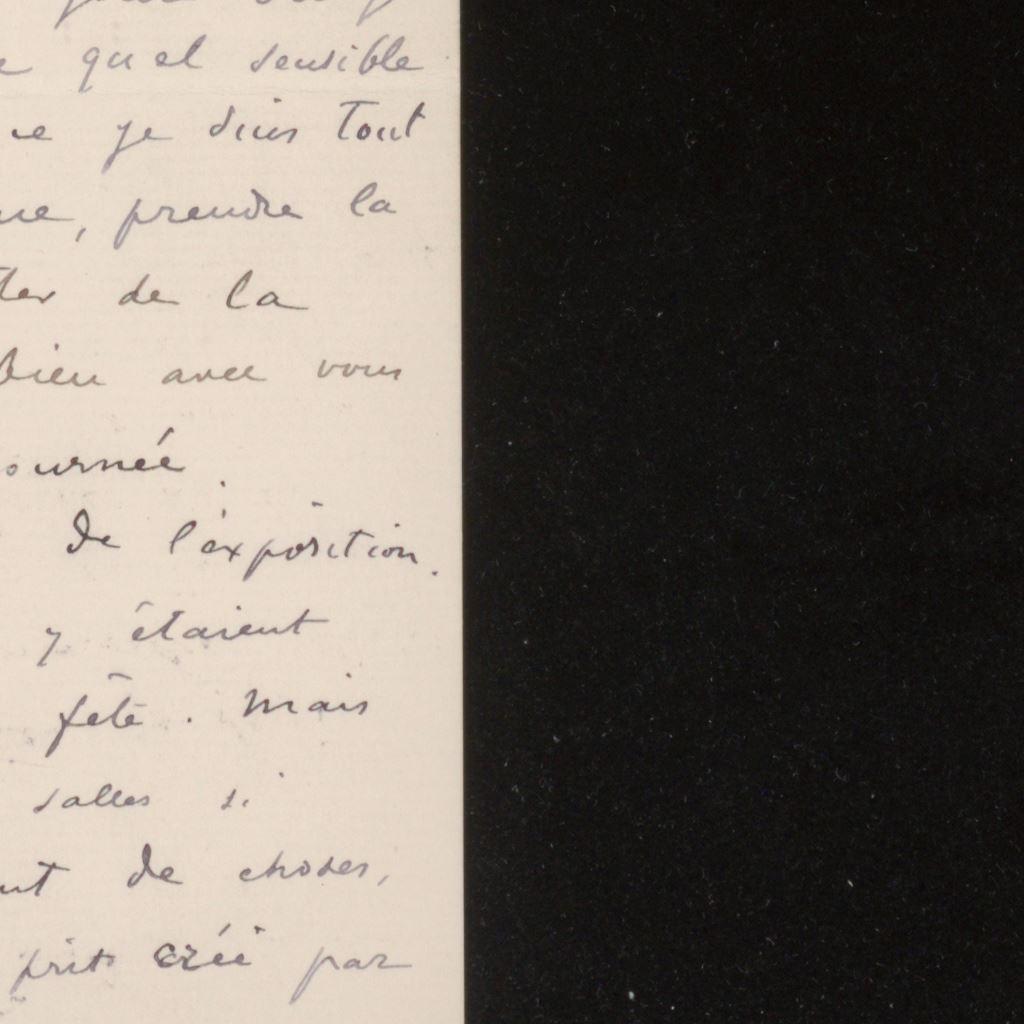 quel sensible
je suis tout
, prendre la
de la
bien avec vous
ournée.
de l'exposition.
y étaient
fête. Mais
salles si
de choses,
créé par